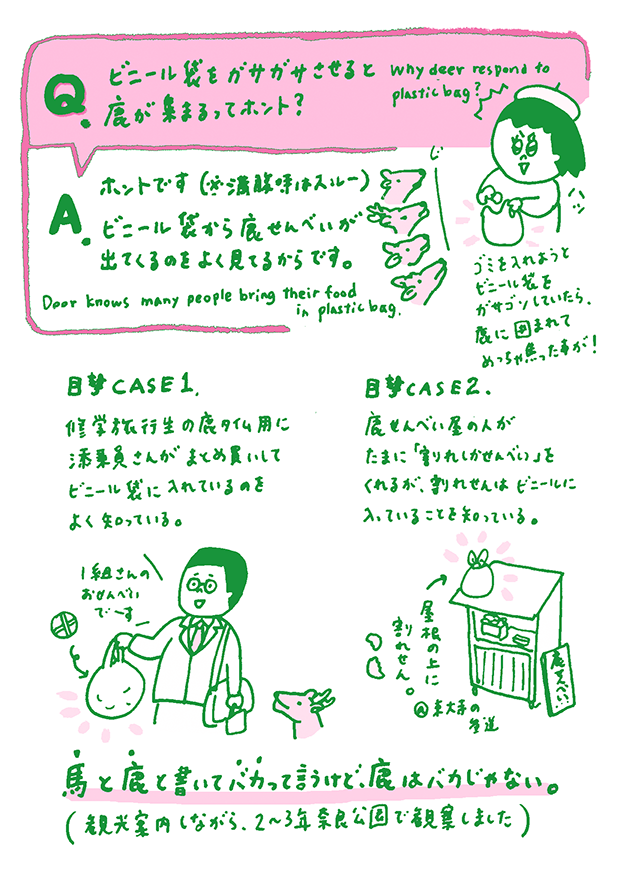 Q. ビニール袋をガサガサさせると
鹿が集まるってホント？
Why deer respond to
plastic bag?
A. ホントです（※満腹時はスルー）
ビニール袋から鹿せんべいが
出てくるのをよく見てるからです。
Deer knows many people bring their food
in plastic bag.
じ
ハッ
ゴミを入れようと
ビニール袋を
ガサゴソしていたら、
鹿に囲まれて
めっちゃ焦った事が！
目撃CASE1.
修学旅行生の鹿タイム用に
添乗員さんがまとめ買いして
ビニール袋に入れているのを
よく知っている。
1組さんの
おせんべい
でーす
目撃CASE2.
鹿せんべい屋の人が
たまに「割れしかせんべい」を
くれるが、割れせんはビニールに
入っていることを知っている。
屋根の上に
割れせん。
@東大寺の
参道
馬と鹿と書いてバカって言うけど、鹿はバカじゃない。
（観光案内しながら、2〜3年奈良公園で観察しました）